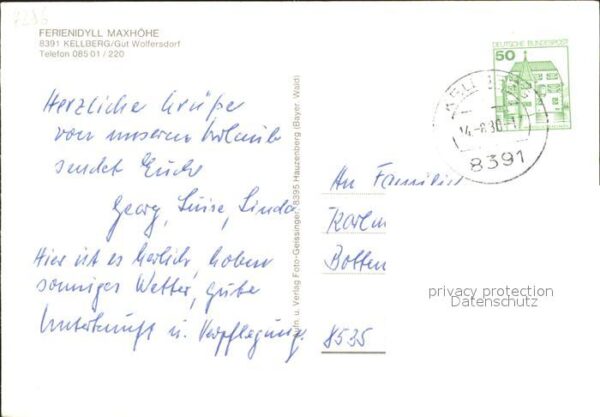 7236
FERIENIDYLL MAXHÖHE
8391 KELLBERG/Gut Wolfersdorf
Telefon 08501/220
DEUTSCHE BUNDESPOST
50
14.-8.80.-1
8391
Herzliche Grüße
von unserem Urlaub
sendet Euch
Georg, Luise, Linda
Hier ist es herrlich, haben
sonniges Wetter, gute
Unterkunft u. Verpflegung.
Aufn. u. Verlag Foto-Geissinger, 8395 Hauzenberg (Bayer. Wald)
An Familie
Karlm
Botten
privacy protection
Datenschutz
8535